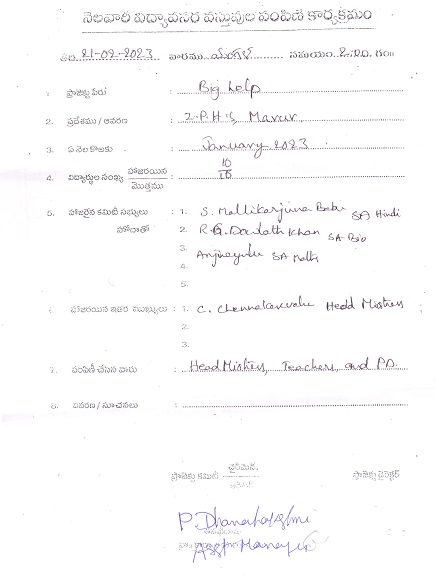 నెలవారి విద్యావసర వస్తువుల పంపిణీ కార్యక్రమం
తేది. 21-02-2023 వారము మంగళ సమయం. 2.00. గం॥
1. ప్రాజెక్టు పేరు : Big help
2. ప్రదేశము / ఆవరణ : Z.P.H.S, Mavur
3. ఏ నెల కొఱకు : January 2023
4. విద్యార్థుల సంఖ్య హాజరయిన / మొత్తము : 10/16
5. హాజరైన కమిటీ సభ్యులు : 1. S. Mallikarjuna Babu SA Hindi
హోదాతో 2. R.G. Dowlath Khan SA Bio
3. Anjineyulu SA Maths
4.
5.
6. హాజరయిన ఇతర ముఖ్యులు : 1. C. Chennakesavulu Head Mistress
2.
3.
7. పంపిణీ చేసిన వారు : Head Mistress, Teachers and PD
8. వివరణ / సూచనలు :
ప్రాజెక్టు కమిటీ ఛైర్మెన్ ప్రాజెక్టు డైరెక్టర్
P. Dhanalakshmi
Asst Manager